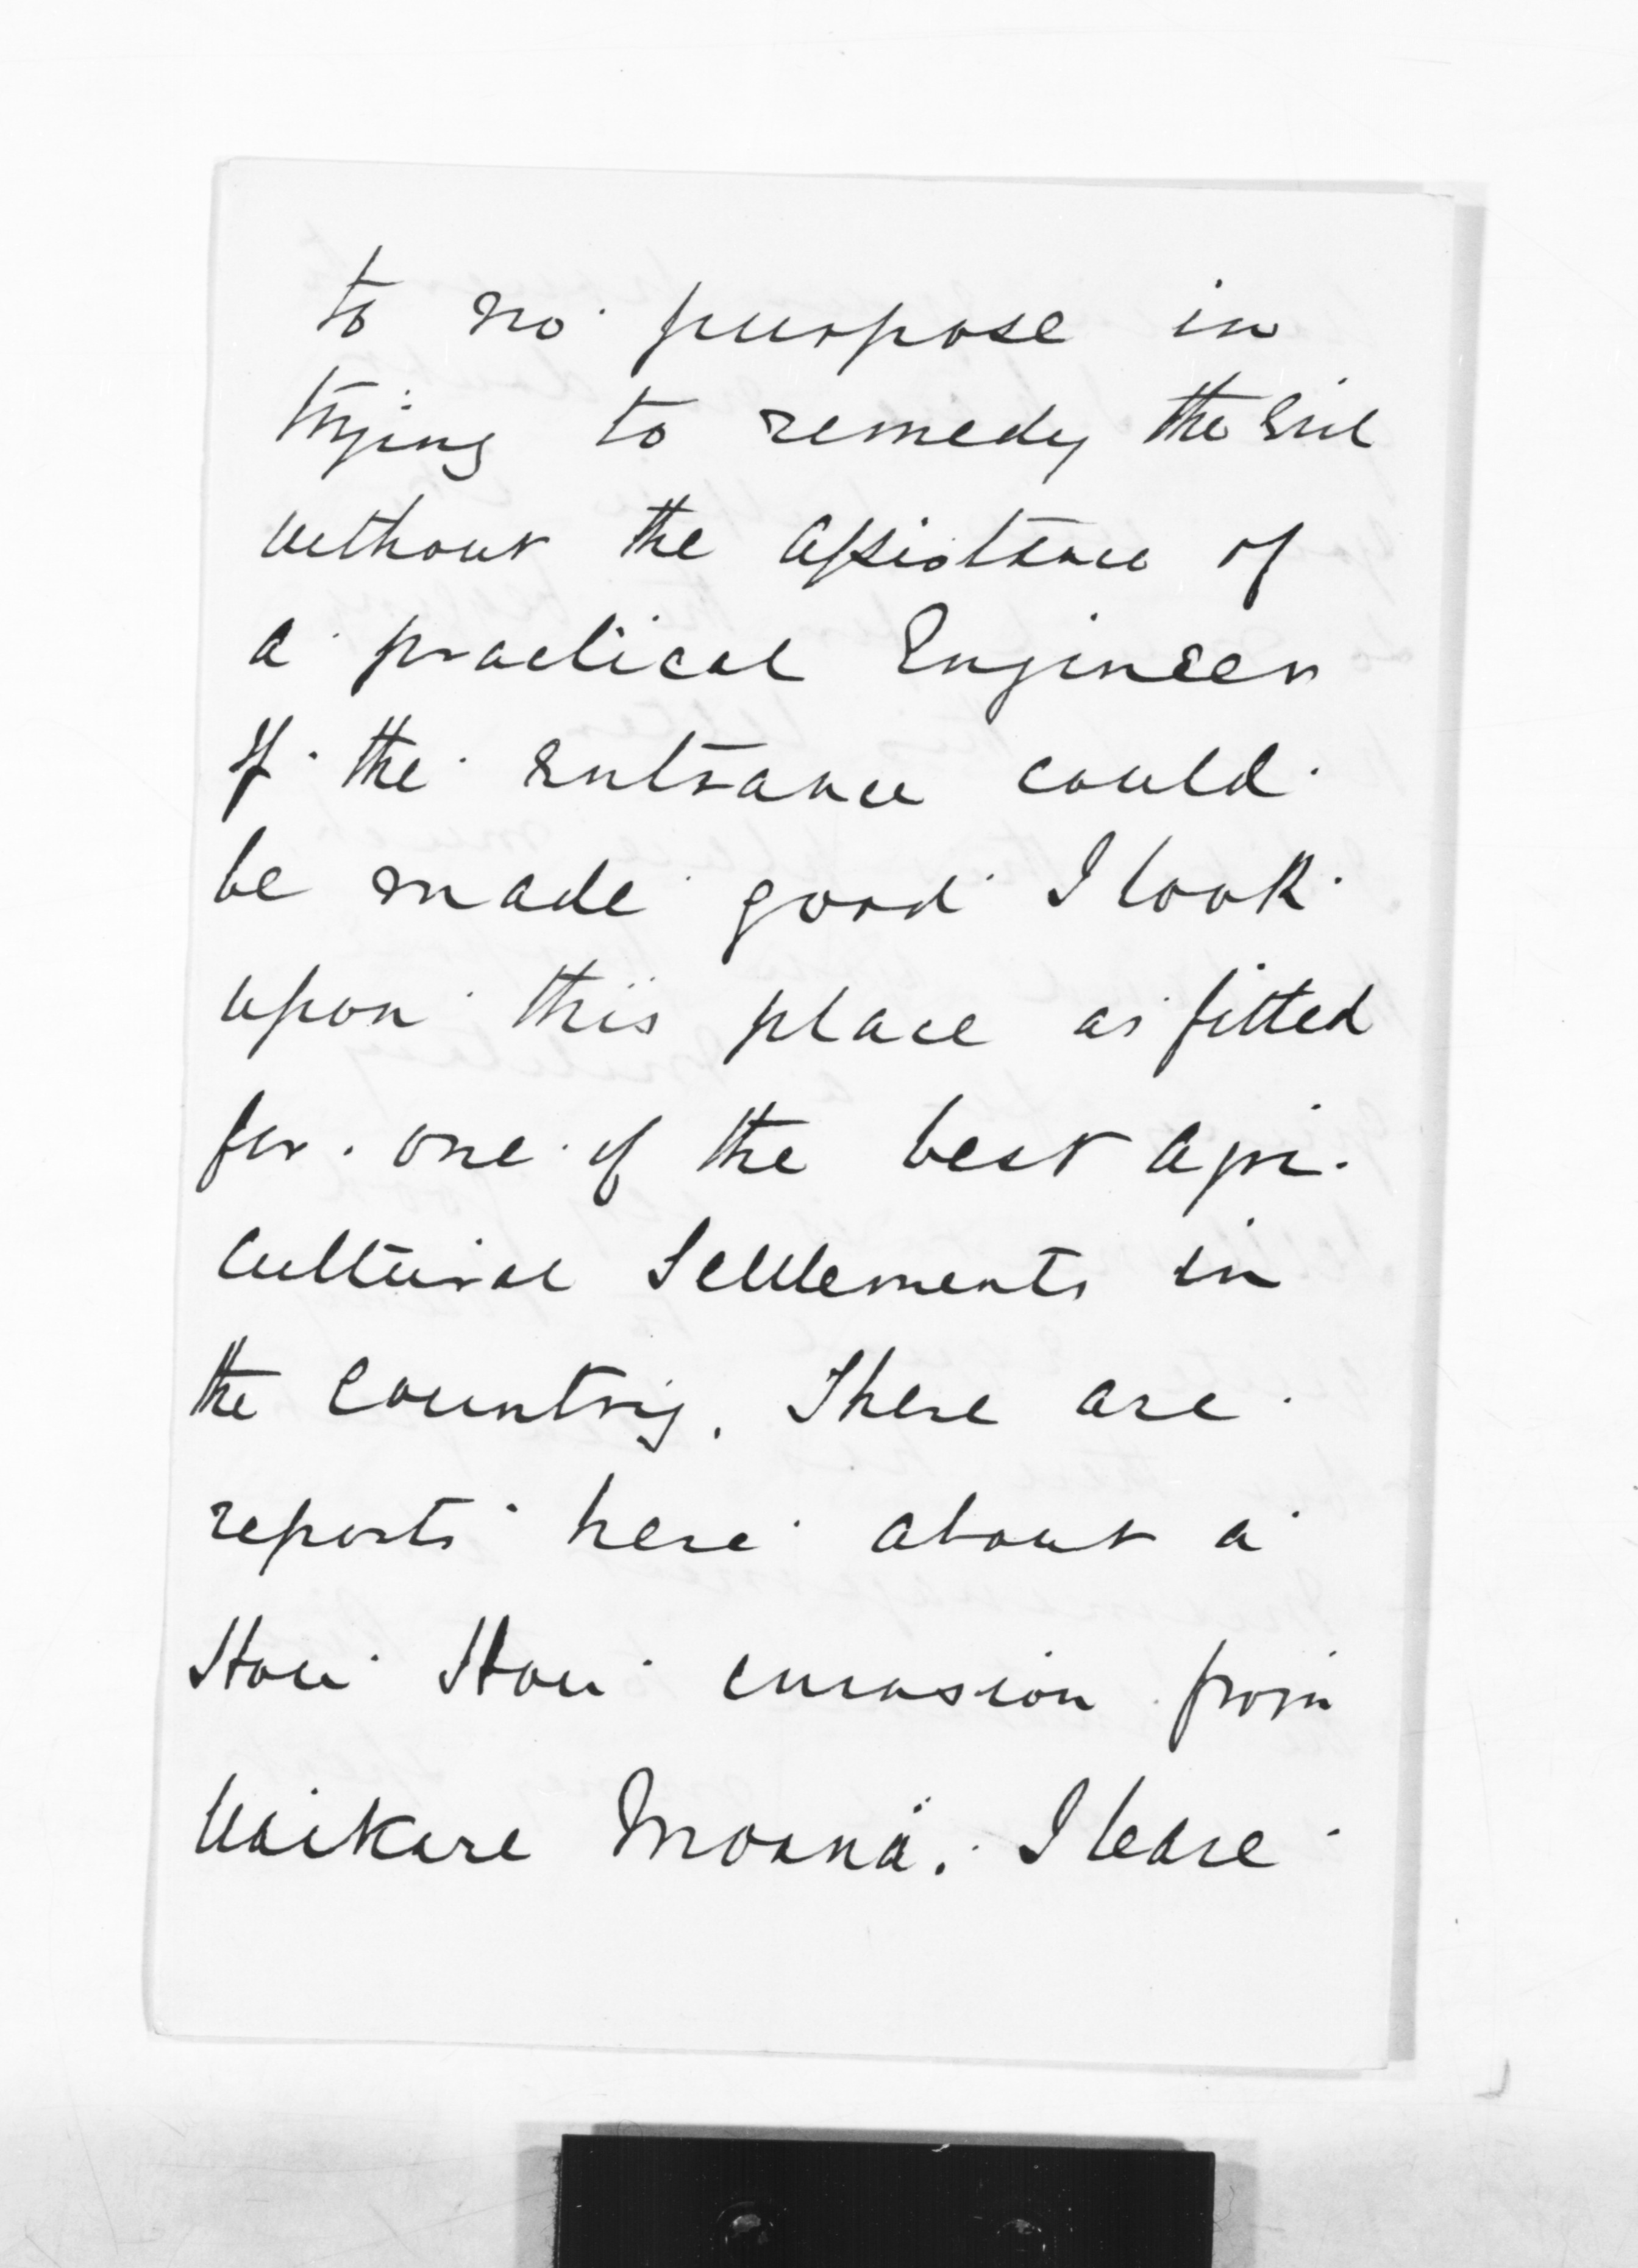 to no purpose in
trying to remedy the Evil
without the assistance of
a practical Engineer
If the entrance could
be made good I look
upon this place as fitted
for one of the best agri-
cultural Settlements in
the Country. There are
reports here about a
Hau Hau invasion from
Waikare Moana. I leave